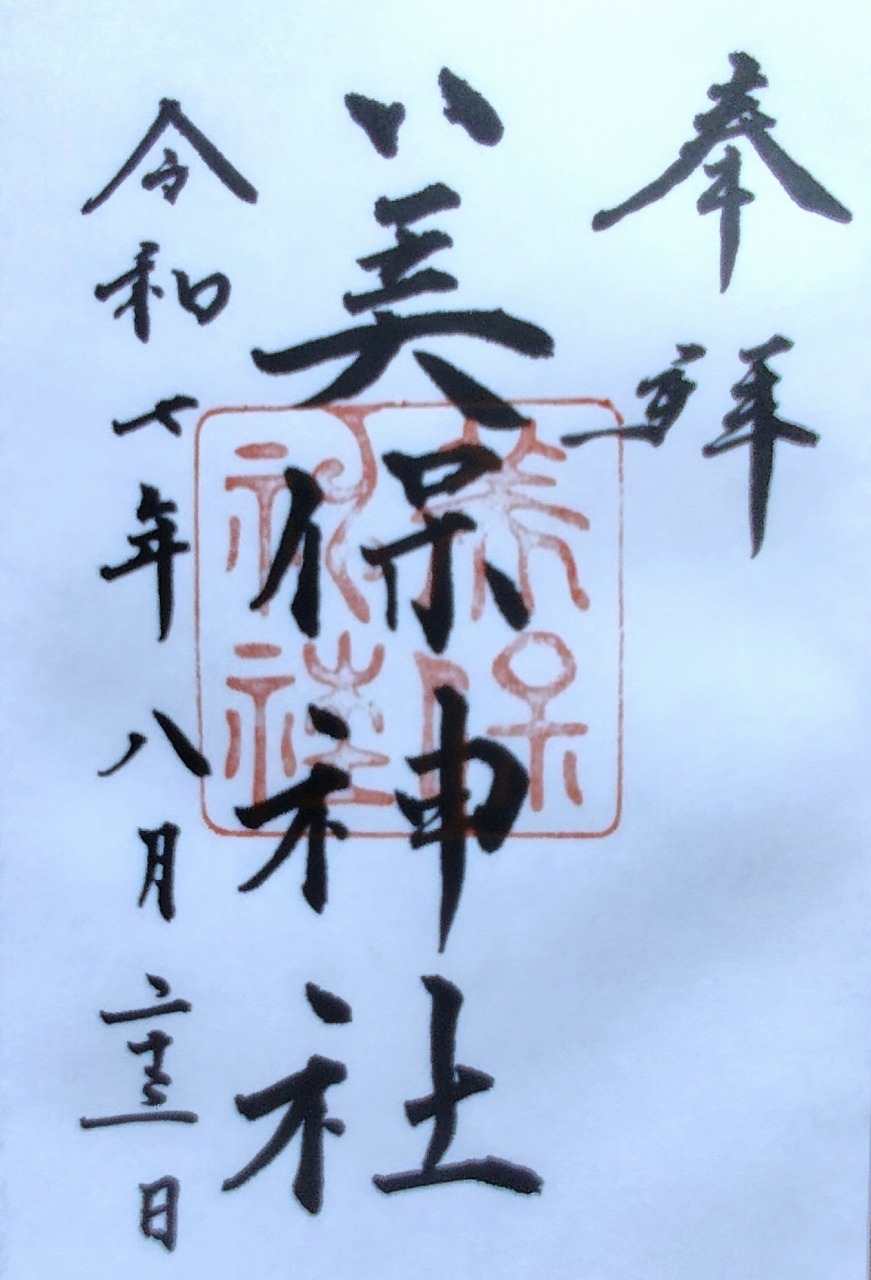 奉拝
美保神社
令和七年八月二十三日
美保
神社